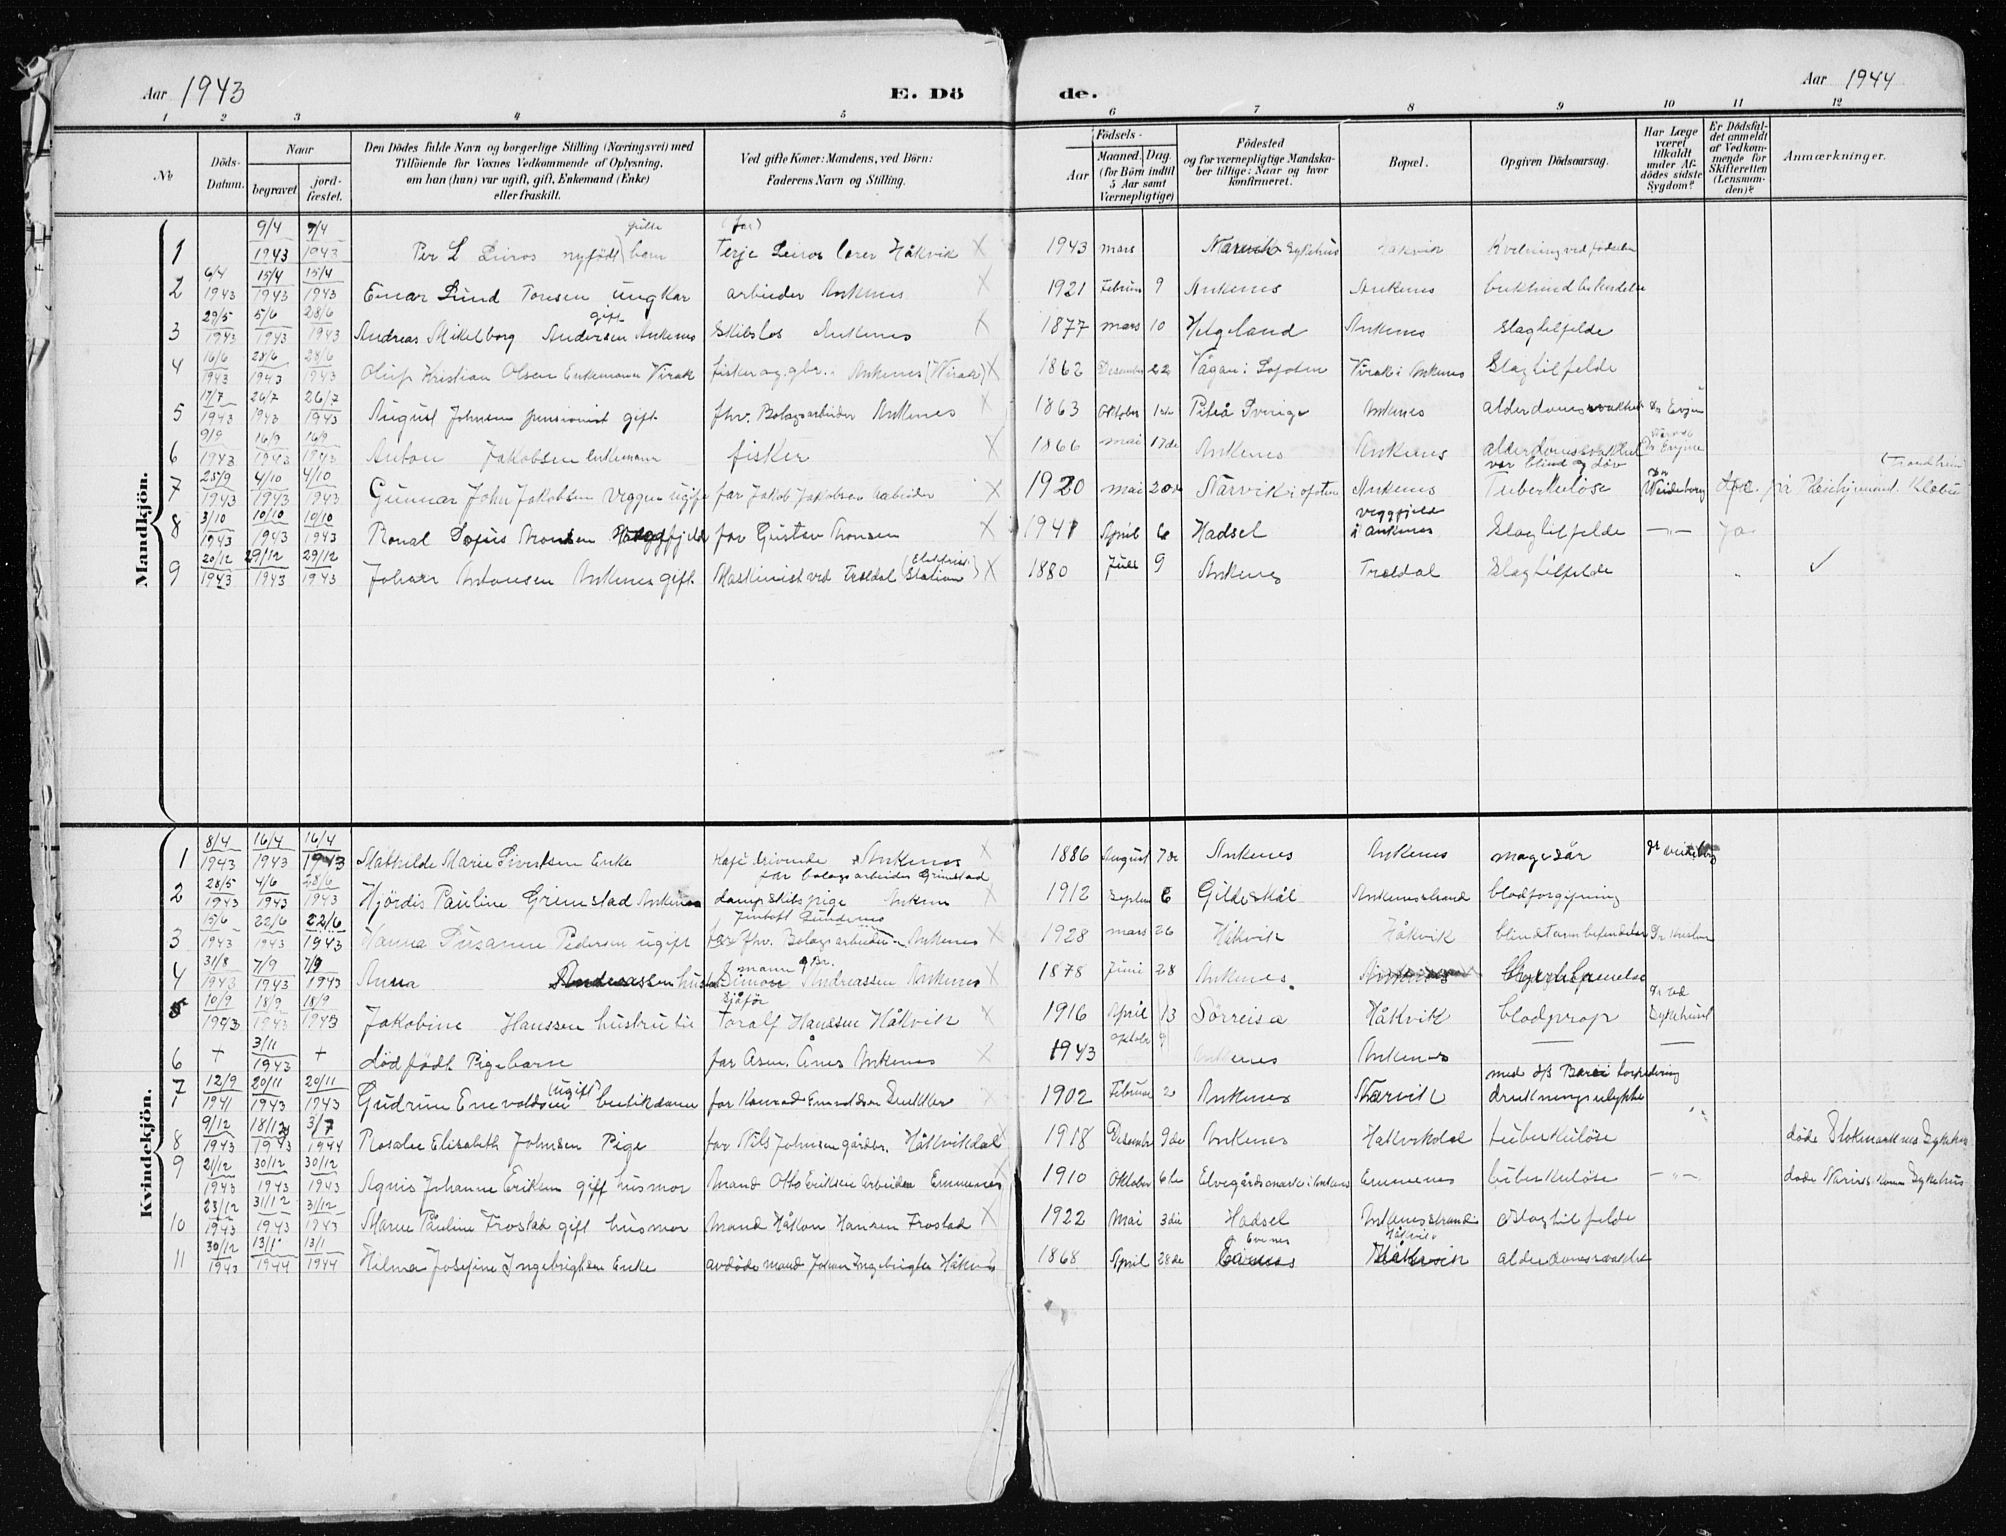 Aar 1943 E. Dö de. Aar 1944
1 2 3 4 5 6 7 8 9 10 11 12
No
Döds-Datum.
Naar
begravet.
jord-fæstet.
Den Dödes fulde Navn og borgerlige Stilling (Næringsvei) med
Tilföiende for Voxnes Vedkommende af Oplysning,
om han (hun) var ugift, gift, Enkemand (Enke)
eller fraskilt.
Ved gifte Koner: Mandens, ved Börn:
Faderens Navn og Stilling.
Födsels-
Aar
Maaned. Dag.
(for Börn indtil
5 Aar samt
Værnepligtige)
Födested
og for værnepligtige Mandska-
ber tillige: Naar og hvor
konfirmeret.
Bopæl.
Opgiven Dödsaarsag.
Har Læge
været
tilkaldt
under Af-
dödes sidste
Sygdom?
Er Dödsfal-
det anmeldt
af Vedkom-
mende for
Skifteretten
(Lensman-
den)?
Anmærkninger.
Mandkjön.
1 9/4 1943 9/4 1943 Per L Leiros nyfödt barn (far) Terje Leiros lærer Håkvik X 1943 mars Narvik Sykehus Håkvik Kvelning ved fødselen
2 6/4 1943 15/4 1943 15/4 1943 Einar Lund Tonsen ungkar arbeider Ankenes X 1921 Februar 9 Ankenes Ankenes
3 29/5 1943 5/6 1943 28/6 1943 Andreas Mikelborg Andersen gift Ankenes Skibslos Ankenes X 1877 mars 10 Helgeland Ankenes Slagtilfelde
4 16/6 1943 28/6 1943 28/6 1943 Oluf Kristian Olsen Enkemann Virak fisker og gbr. Ankenes (Virak) X 1862 Desember 22 Vågan i Lofoten Virak i Ankenes Slagtilfelde
5 17/7 1943 26/7 1943 26/7 1943 August Johnsen pensionist gift fhv. Bolagsarbeider Ankenes X 1863 Oktober Piteå Sverige Ankenes alderdomssvakhet Dr Evjen
6 9/9 1943 16/9 1943 16/9 1943 Anton Jakobsen enkemann fisker X 1866 mai 17de Ankenes Ankenes alderdomssvakhet var blind og döv Dr Evjen
7 25/9 1943 4/10 1943 4/10 1943 Gunnar John Jakobsen Veggen ugift far Jakob Jakobsen arbeider X 1920 mai 20de Narvik i Ofoten Ankenes Tuberkuløse Dr Weideborg
8 3/10 1943 10/10 1943 10/10 1943 Ronal Sofus far Gustav X 1941 April 6 Hadsel Veggfjeld i Ankenes Slagtilfelde -"- Ja
9 20/12 1943 29/12 1943 29/12 1943 Johan Antonsen Ankenes gift Maskinist ved Trældal (Elektrisk Station) X 1880 Juli 9 Ankenes Trældal Slagtilfelde " ✓
Kvindekjön.
1 8/4 1943 16/4 1943 16/4 1943 Mathilde Marie Sivertsen Enke Kafè drivende Ankenes X 1886 August 7de Ankenes Ankenes magesår
2 28/5 1943 4/6 1943 28/6 1943 Hjördis Pauline Grimstad Ankenes far bolagsarbeider Grimstad dampskibspige X 1912 Septem 6 Gildeskål Ankenesstrand blodforgifning
3 15/6 1943 22/6 1943 22/6 1943 Hanna Susanne Pedersen ugift far fhv. Bolagsarbeider Ankenes X 1928 mars 26 Håkvik Håkvik
4 31/8 1943 7/9 1943 7/9 1943 Anna Andreassen mann gbr. Simon Andreassen Ankenes X 1878 Juni 28 Ankenes.
5 10/9 1943 18/9 1943 18/9 1943 Jakobine Hanssen hustru til sjåför Toralf Hanssen Håkvik X 1916 April 13 Sörreisa Håkvik blodprop
6 + 3/11 1943 + dödfödt Pigebarn X 1943 oktobr 9 Ankenes Ankenes —
7 12/9 1941 20/11 1943 20/11 1943 Gudrun Enevoldsen (ugift) butikdame far Konrad Enevoldsen 1902 Februar 2 Ankenes Narvik med d/s torpedering drukningsulykke
8 9/12 1943 18/12 1943 3/7 1944 Rosalie Elisabeth Johnsen Pige far Nils Johnsen gårdbr. Håkvikdal 1918 Desember 9de Ankenes Håkvikdal tuberkuløse döde Stokmarknes Sykehus
9 21/12 1943 30/12 1943 30/12 1943 Agnis Johanne Eriksen gift husmor Mand Otto Eriksen Arbeider Emmenes 1910 Oktober 6te Elvegårdsmark i Ankenes Emmenes tuberkuløse -"- döde Narvik Sykehus
10 23/12 1943 31/12 1943 31/12 1943 Marie Påline Frostad gift husmor Mand Håkon Hansen Frostad X 1922 Mai 3die Hadsel Ankenesstrand Slagtilfelde
11 30/12 1943 13/1 1944 13/1 1944 Hilma Josefine Ingebrigtsen Enke avdöde mand Johan Ingebrigtsen Håkvik 1868 April 28de Evenes Håkvik alderdomssvakhet